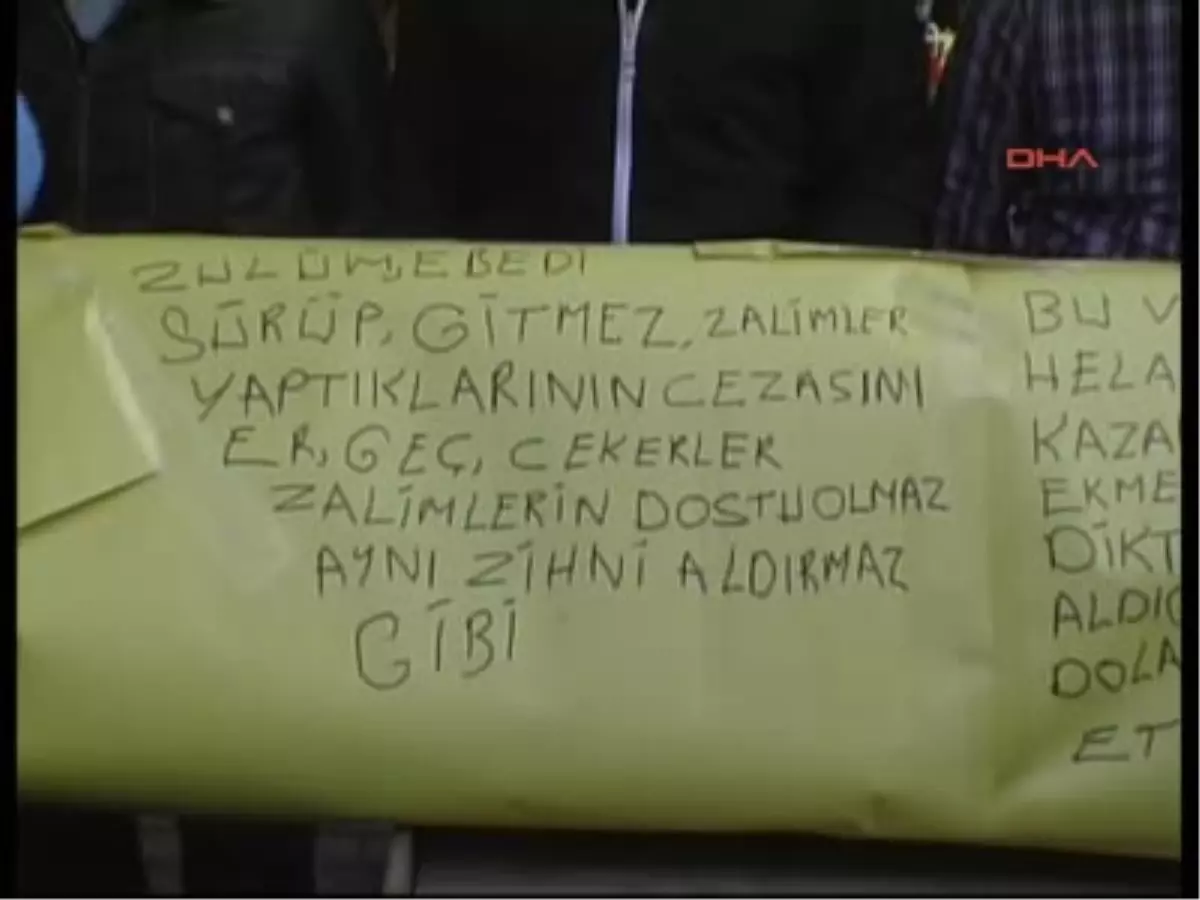 DHA
ZULÜM, EBEDİ
SÜRÜP, GİTMEZ, ZALİMLER
YAPTIKLARININ CEZASINI
ER, GEÇ, CEKERLER
ZALİMLERİN DOSTUOLMAZ
AYNI ZİHNİ ALDIRMAZ
GİBİ
BU V
HELA
KAZA
EKME
DİKT
ALDIĞ
DOLA
ET